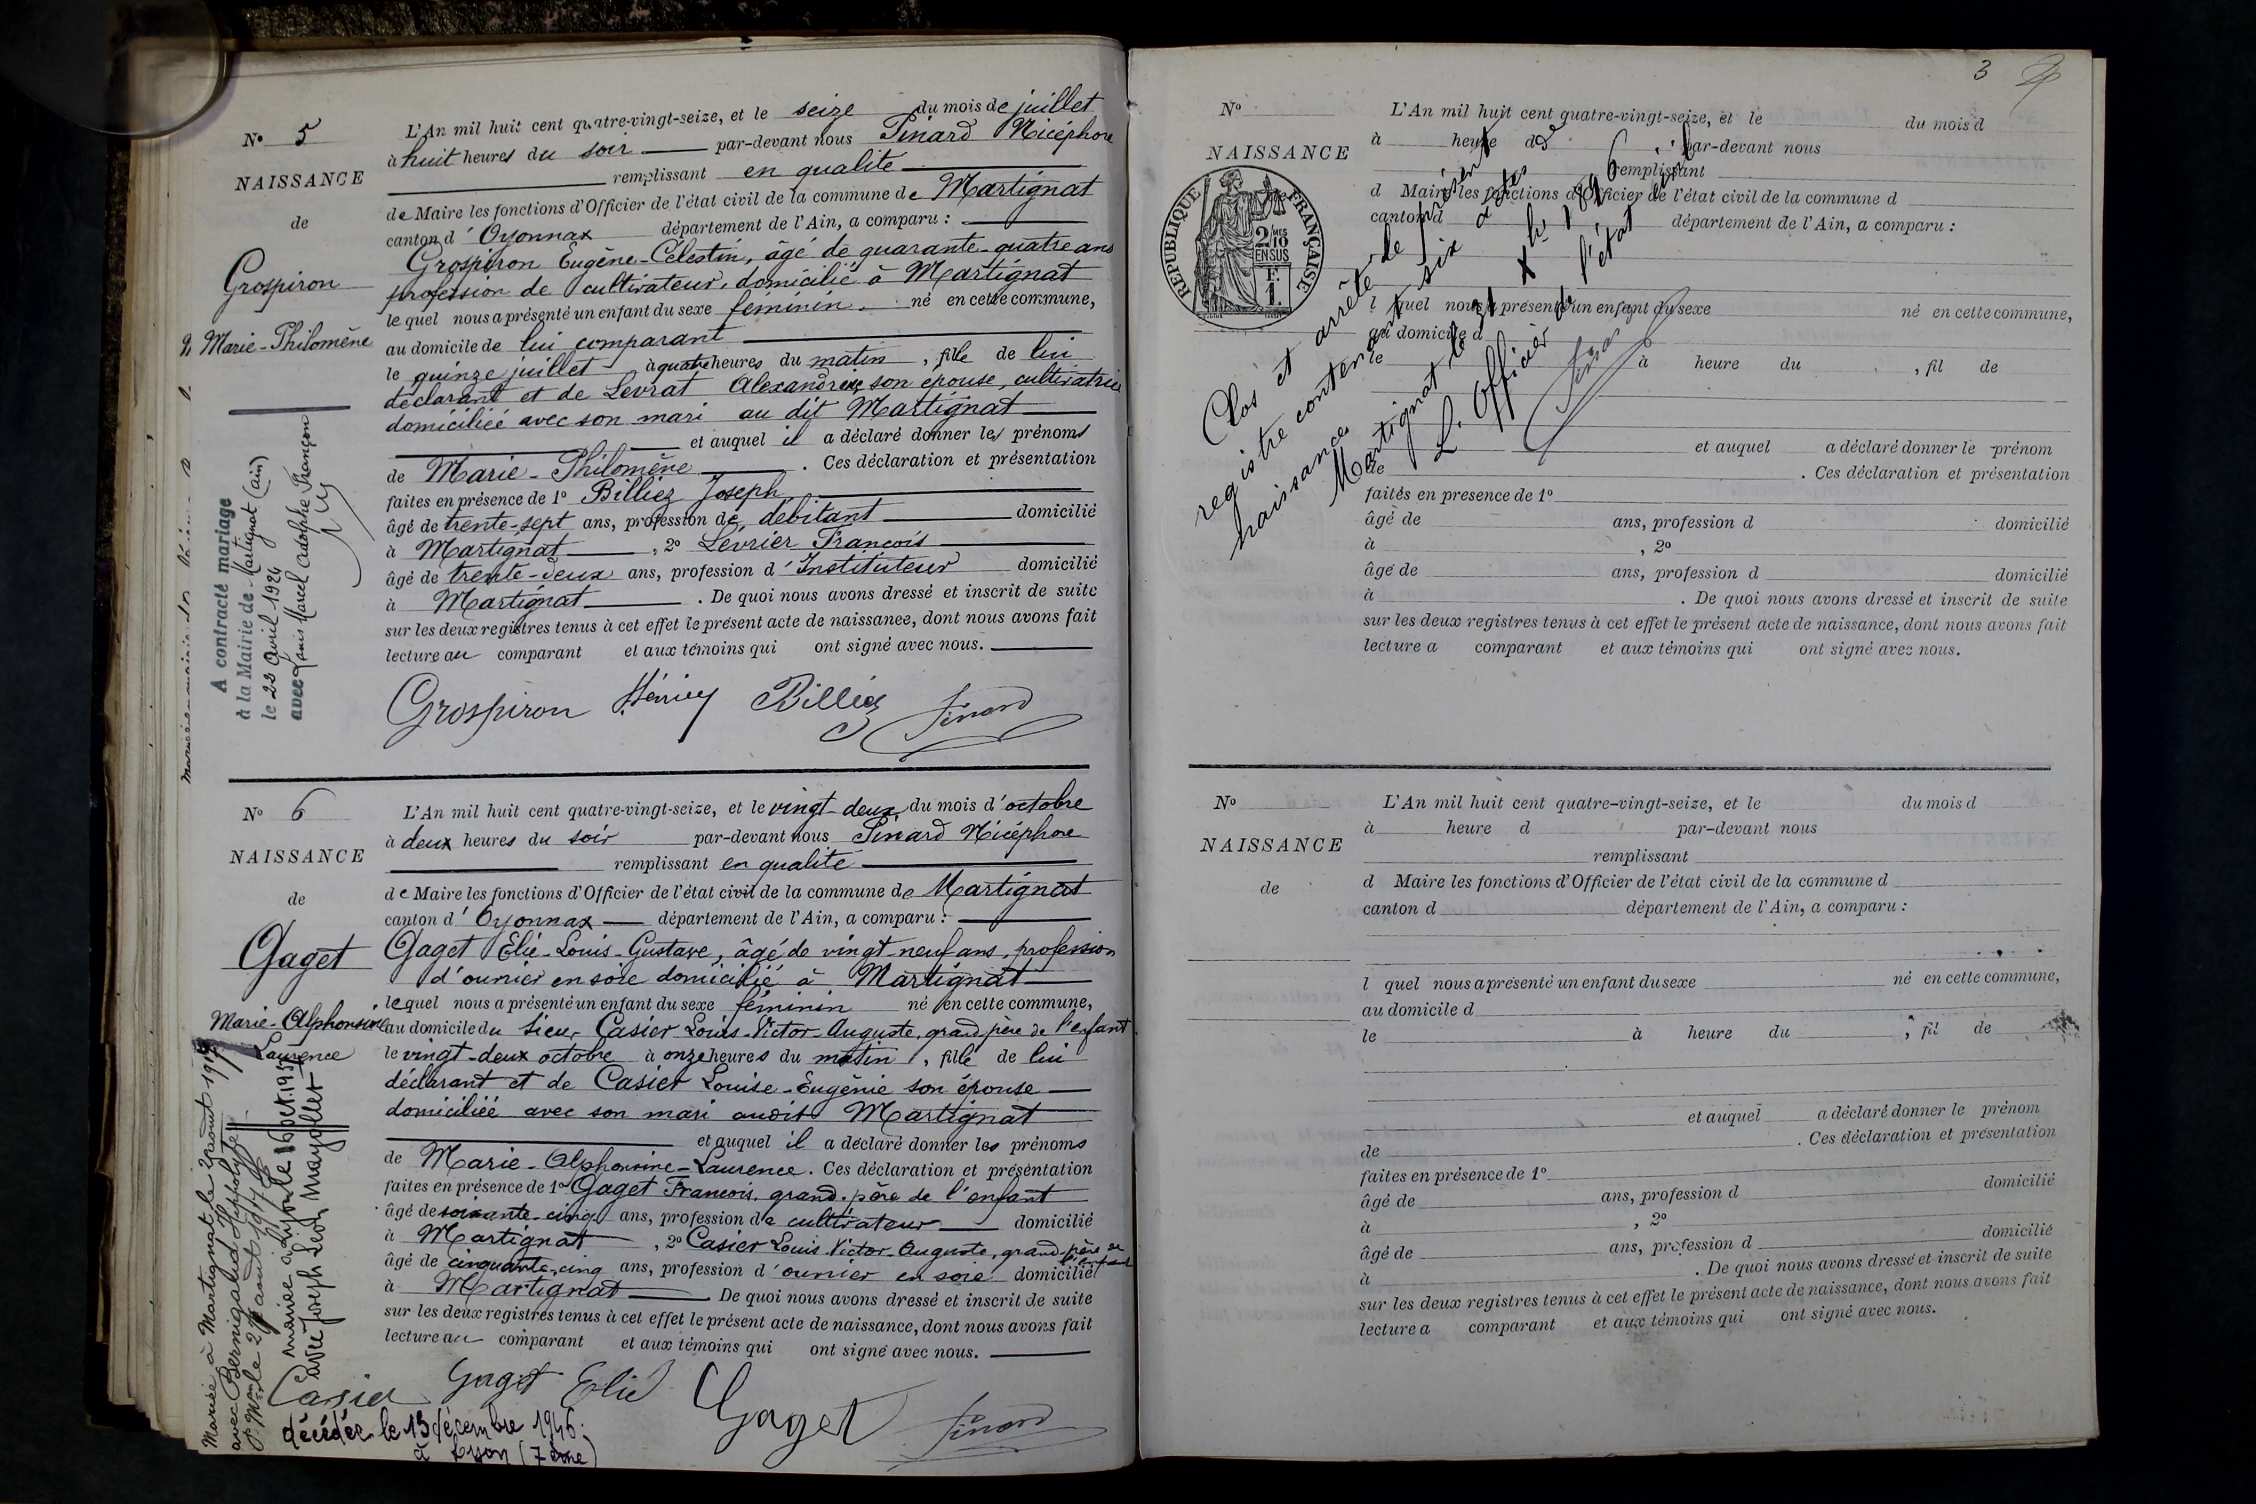 N° 5
NAISSANCE
de
Grospiron
Marie-Philomène
A contracté mariage
à la Mairie de Martignat (ain)
le 23 avril 1924
avec Louis Marcel Adolphe Françon
L'An mil huit cent quatre-vingt-seize, et le seize du mois de juillet
à huit heures du soir par-devant nous Pinard Nicéphore
remplissant en qualité
de Maire les fonctions d'Officier de l'état civil de la commune de Martignat
canton d'Oyonnax département de l'Ain, a comparu :
Grospiron Eugène-Célestin, âgé de quarante-quatre ans
profession de cultivateur, domicilié à Martignat
lequel nous a présenté un enfant du sexe féminin né en cette commune,
au domicile de lui comparant
le quinze juillet à quatre heures du matin, fille de lui
déclarant et de Levrat Alexandrine son épouse, cultivatrice
domiciliée avec son mari au dit Martignat
et auquel il a déclaré donner les prénoms
de Marie-Philomène. Ces déclaration et présentation
faites en présence de 1° Billiez Joseph
âgé de trente-sept ans, profession de débitant domicilié
à Martignat, 2° Levrier François
âgé de trente-deux ans, profession d'Instituteur domicilié
à Martignat. De quoi nous avons dressé et inscrit de suite
sur les deux registres tenus à cet effet le présent acte de naissance, dont nous avons fait
lecture au comparant et aux témoins qui ont signé avec nous.
Grospiron Billiez Pinard
N° 6
NAISSANCE
de
Gaget
Marie-Alphonsine
Laurence
Mariée à Martignat le 2 août 19
avec Bernigaud Hippolyte
mariée à Lyon le 16 oct. 193
avec Joseph Léon Mayollet
L'An mil huit cent quatre-vingt-seize, et le vingt-deux du mois d'octobre
à deux heures du soir par-devant nous Pinard Nicéphore
remplissant en qualité
de Maire les fonctions d'Officier de l'état civil de la commune de Martignat
canton d'Oyonnax département de l'Ain, a comparu :
Gaget Elie-Louis-Gustave, âgé de vingt-neuf ans, profession
d'ouvrier en soie domicilié à Martignat
lequel nous a présenté un enfant du sexe féminin né en cette commune,
au domicile du sieur Casier Louis-Victor-Auguste, grand père de l'enfant
le vingt-deux octobre à onze heures du matin, fille de lui
déclarant et de Casier Louise-Eugénie son épouse
domiciliée avec son mari audit Martignat
et auquel il a déclaré donner les prénoms
de Marie-Alphonsine-Laurence. Ces déclaration et présentation
faites en présence de 1° Gaget François, grand-père de l'enfant
âgé de soixante-cinq ans, profession de cultivateur domicilié
à Martignat, 2° Casier Louis-Victor-Auguste, grand-père de l'enfant
âgé de cinquante-cinq ans, profession d'ouvrier en soie domicilié
à Martignat De quoi nous avons dressé et inscrit de suite
sur les deux registres tenus à cet effet le présent acte de naissance, dont nous avons fait
lecture au comparant et aux témoins qui ont signé avec nous.
Casier Gaget Elie Gaget Pinard
décédée le 13 décembre 1946
à Lyon (7ème)
3
N°
NAISSANCE
RÉPUBLIQUE FRANÇAISE
2/10 MES
EN SUS
F.
1.
L'An mil huit cent quatre-vingt-seize, et le du mois d
à heure d par-devant nous
remplissant
d Maire les fonctions d'Officier de l'état civil de la commune d
canton d département de l'Ain, a comparu :
l quel nous a présenté un enfant du sexe né en cette commune,
au domicile d
le à heure du , fil de
et auquel a déclaré donner le prénom
de . Ces déclaration et présentation
faites en présence de 1°
âgé de ans, profession d domicilié
à , 2°
âgé de ans, profession d domicilié
à . De quoi nous avons dressé et inscrit de suite
sur les deux registres tenus à cet effet le présent acte de naissance, dont nous avons fait
lecture a comparant et aux témoins qui ont signé avec nous.
Clos et arrêté le présent
registre contenant six actes de
naissances
Martignat, le 31 Xbre 1896
L'Officier de l'état civil
Pinard
N°
NAISSANCE
de
L'An mil huit cent quatre-vingt-seize, et le du mois d
à heure d par-devant nous
remplissant
d Maire les fonctions d'Officier de l'état civil de la commune d
canton d département de l'Ain, a comparu :
l quel nous a présenté un enfant du sexe né en cette commune,
au domicile d
le à heure du , fil de
et auquel a déclaré donner le prénom
de . Ces déclaration et présentation
faites en présence de 1°
âgé de ans, profession d domicilié
à , 2°
âgé de ans, profession d domicilié
à . De quoi nous avons dressé et inscrit de suite
sur les deux registres tenus à cet effet le présent acte de naissance, dont nous avons fait
lecture a comparant et aux témoins qui ont signé avec nous.